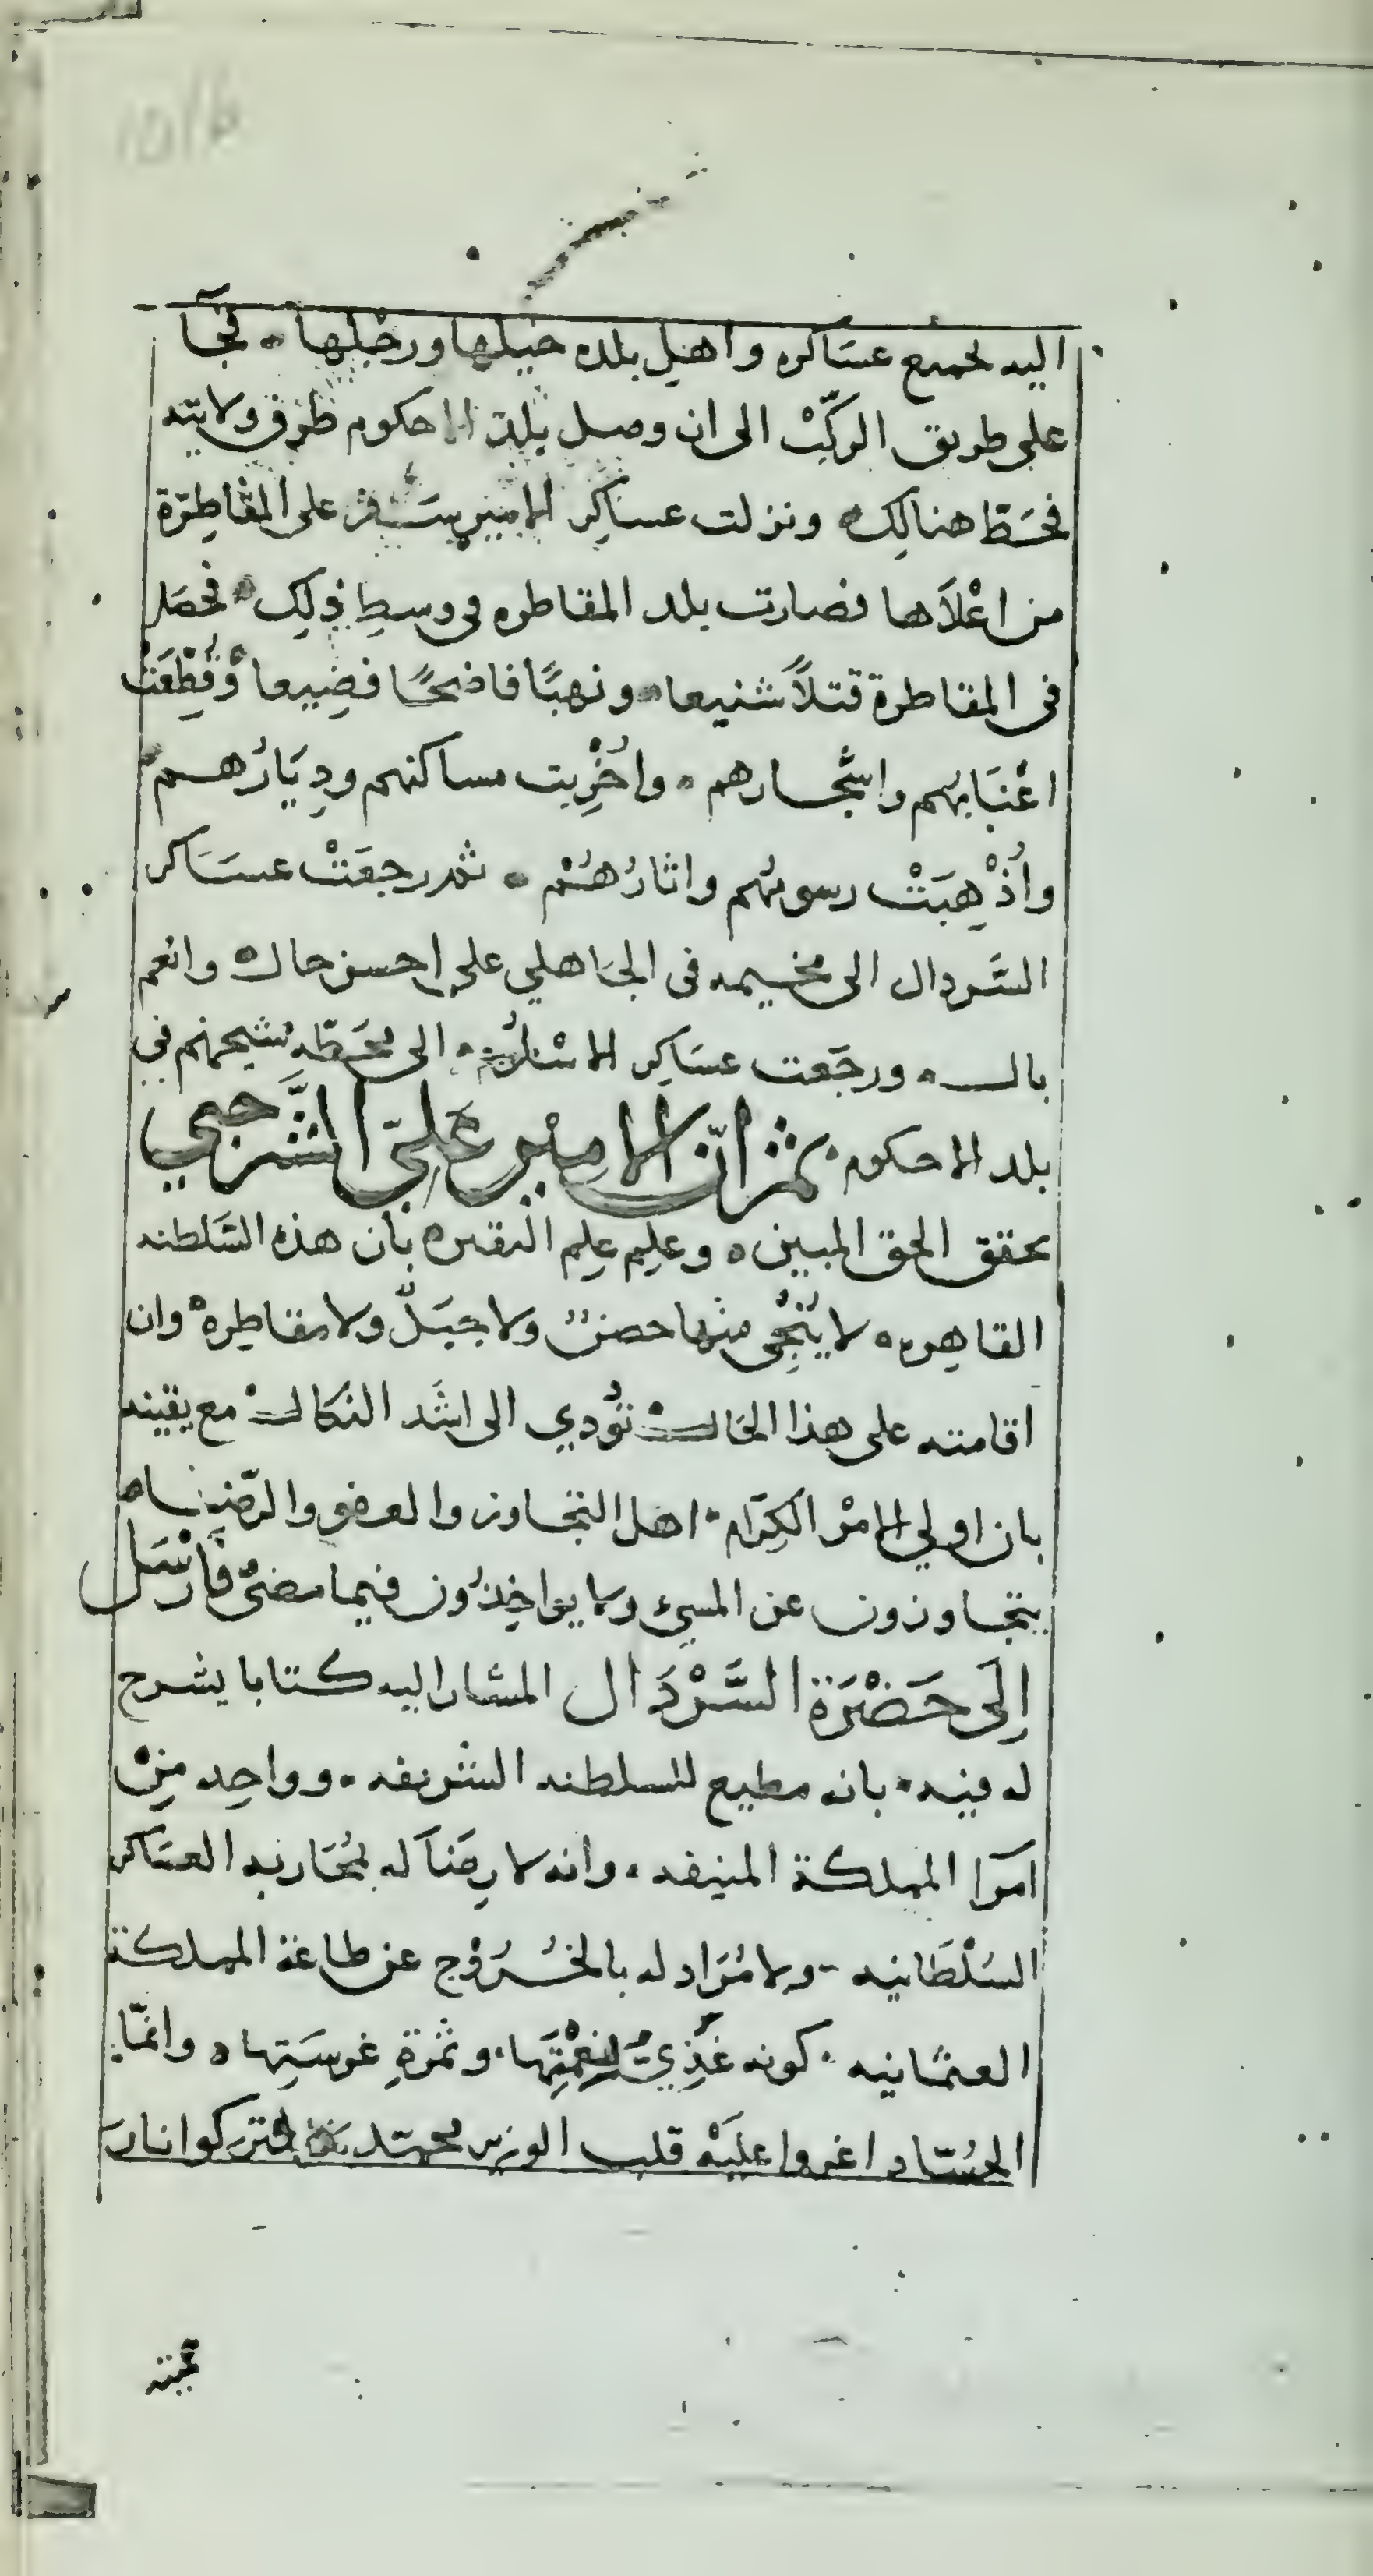 اليه بجميع عساكره واهل بلده خيلها ورجلها فجآ
على طريق الركب الى ان وصل بلد الاحكوم طرف ولايته
فحط هنالك ونزلت عساكر الامير على المقاطرة
من اعلاها فصارت بلد المقاطره في وسط ذلك فحصل
في المقاطرة قتلاً شنيعا ونهبًا فاضحًا فضيعا وقُطِعَتْ
اعْنَابهم واشجارهم واخْرِبت مساكنهم ودِيَارُهم
واُذْهِبَتْ رسومُهم واثارُهُمْ ثم رجعَتْ عسَاكر
السَّردال الى مخيمه في الجاهلي على احسن حال وانعم
بال ورجَعت عسَاكِر الى محَطّة شيخهم في
بلد الاحكوم ثم انّ الامير علي الشَّرجبي
تحقق الحق المبين وعلِم علم اليقين بأن هذه السَّلطنه
القاهره لا يُنْجي منها حصنٌ ولا جبَلٌ ولا مقاطره وان
اقامته على هذا الحَال تُودي الى اشَد النكال مع يقينه
بان اولي الامْر الكِرَام اهل التجاوز والعفو والرّضى
يتجاوزون عن المسيء ولا يواخِذُون فيما مضى فَارْسَل
إلَى حَضْرَة السَّرْدَال المشار اليه كتابا يشرح
له فيه بانه مطيع للسلطنه الشريفه وواحِد مِنْ
امَرا المملكة المنيفه وانه لا رِضَا له بمُحَاربة العسَاكر
السُلْطَانيه ولا مُرَاد له بالخُرُوْج عن طاعة المملكة
العثمانيه كونه غَذِيّ نِعْمَتِها وثمرَة غرسَتِها وانمّا
الحُسّاد اغروا عليْه قلب الوزير محمّد فتركوا نار